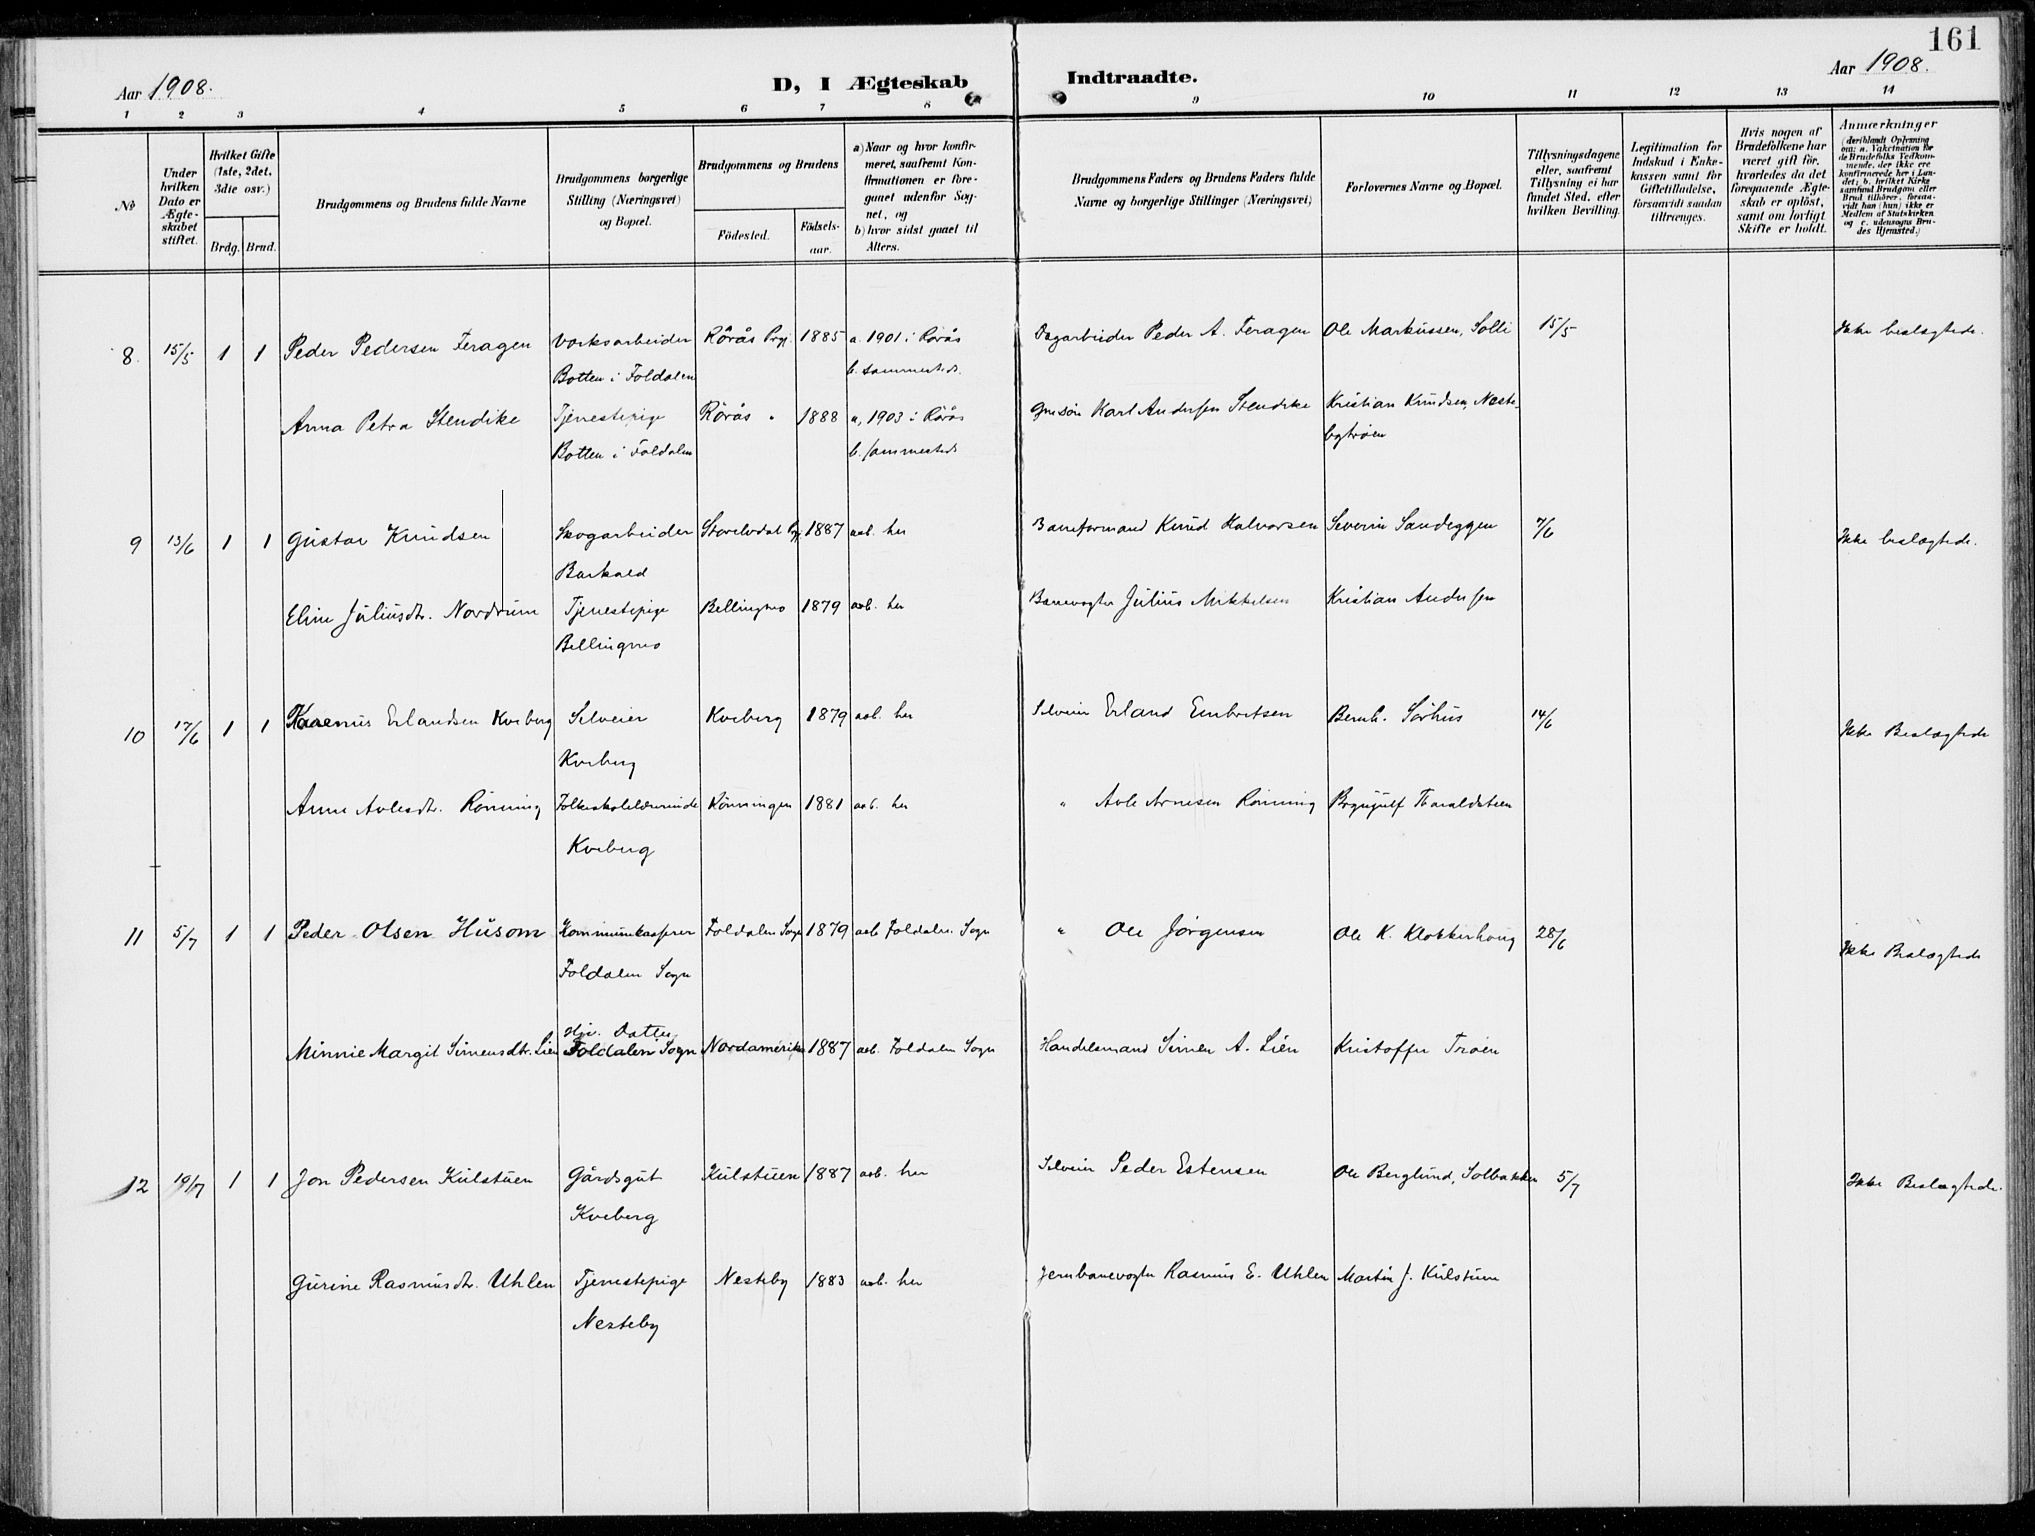 161
Aar 1908.
D, I Ægteskab
Indtraadte.
Aar 1908.
1 2 3 4 5 6 7 8 9 10 11 12 13 14
No
Under hvilken Dato er Ægteskabet stiftet.
Hvilket Gifte (1ste, 2det, 3die osv.)
Brdg. Brud.
Brudgommens og Brudens fulde Navne
Brudgommens borgerlige Stilling (Næringsvei) og Bopæl.
Brudgommens og Brudens
Födested.
Födsels-aar.
a) Naar og hvor konfir-
meret, saafremt Kon-
firmationen er fore-
gaaet udenfor Sog-
net, og
b) hvor sidst gaaet til
Alters.
Brudgommens Faders og Brudens Faders fulde
Navne og borgerlige Stillinger (Næringsvei)
Forlovernes Navne og Bopæl.
Tillysningsdagene
eller, saafremt
Tillysning ei har
fundet Sted, efter
hvilken Bevilling.
Legitimation for
Indskud i Enke-
kassen samt for
Giftetilladelse,
forsaavidt saadan
tiltrænges.
Hvis nogen af
Brudefolkene har
været gift för,
hvorledes da det
foregaaende Ægte-
skab er oplöst,
samt om lovligt
Skifte er holdt.
Anmærkninger
(deriblandt Oplysning
om: a. Vakcination for
de Brudefolks Vedkom-
mende, der ikke ere
konfirmerede her i Lan-
det; b. hvilket Kirke
samfund Brudgom eller
Brud tilhörer, forsaa-
vidt han (hun) ikke er
Medlem af Statskirken
og c. udensogns Bru-
des Hjemsted.)
8. 15/5 1 1 Peder Pedersen Feragen Verksarbeider Rörås Prgj. 1885 a. 1901 i Rörås Dagarbeider Peder A. Feragen Ole Markussen, Solli 15/5 Ikke beslægtede.
Botten i Foldalen b. sammesteds.
Anna Petra Stendike Tjenestepige Rörås " 1888 a, 1903 i Rörås Karl Andersen Stendike Kristian Knudsen, Neste-
Botten i Foldalen b. sammesteds bytrøen
9 13/6 1 1 Gustav Knudsen Skogarbeider 1887 aab. her Baneformand Knud Halvorsen Severin Sandeggen 7/6 Ikke beslægtede.
Barkald
Eline Juliusdtr. Nordrum Tjenestepige Bellingmo 1879 aab. her Banevogter Julius Mikkelsen Kristian Andersen
Bellingmo
10 17/6 1 1 Erlandsen Kveberg Selveier Kveberg 1879 aab. her Selveier Erland Embretsen Bernh. Sørhus 14/6 Ikke Beslægtede
Kveberg
Anne Avlesdtr. Rönning Folkeskolelærerinde Rönningen 1881 aab. her " Avle Arnesen Rönning Brynjulf Tharaldsteen
Kveberg
11 5/7 1 1 Peder Olsen Husom Kommunekasserer Foldalen Sogn 1879 aab Foldalen Sogn " Ole Jørgensen Ole K. Klokkerhoug 28/6 Ikke Beslægtede
Foldalen Sogn
Hjv. Datter
Minnie Margit Simensdtr. Lien Foldalen Sogn Nordamerika 1887 aab. Foldalen Sogn Handelsmand Simen A. Lien Kristoffer Trøen
12 19/7 1 1 Jon Pedersen Kulstuen Gårdsgut Kulstuen 1887 aab. her Selveier Peder Estensen Ole Berglund, Solbakken 5/7 Ikke Beslægtede.
Kveberg
Gurine Rasmusdtr. Uhlen Tjenestepige Nesteby 1883 aab. her Jernbanevogter Rasmus E. Uhlen Martin J. Kulstuen
Nesteby